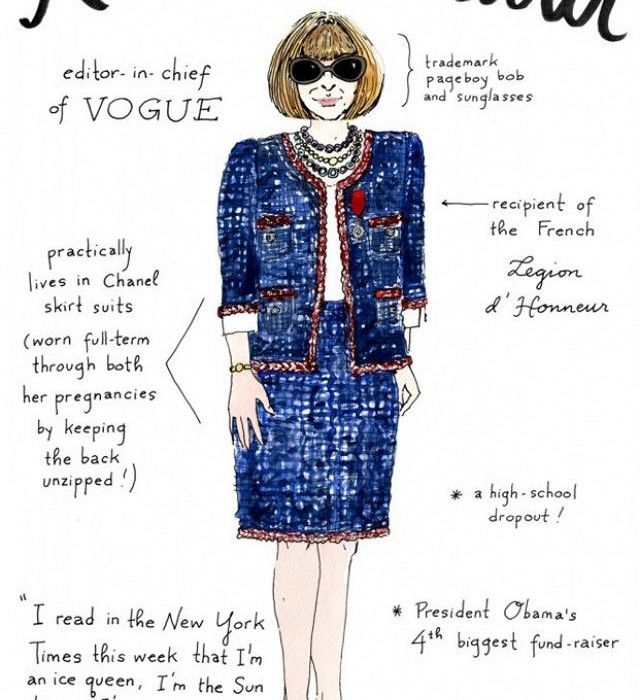 editor-in-chief
of VOGUE
trademark
pageboy bob
and sunglasses
recipient of
the French
Legion
d'Honneur
practically
lives in Chanel
skirt suits
(worn full-term
through both
her pregnancies
by keeping
the back
unzipped!)
* a high-school
dropout!
"I read in the New York
Times this week that I'm
an ice queen, I'm the Sun
* President Obama's
4th biggest fund-raiser